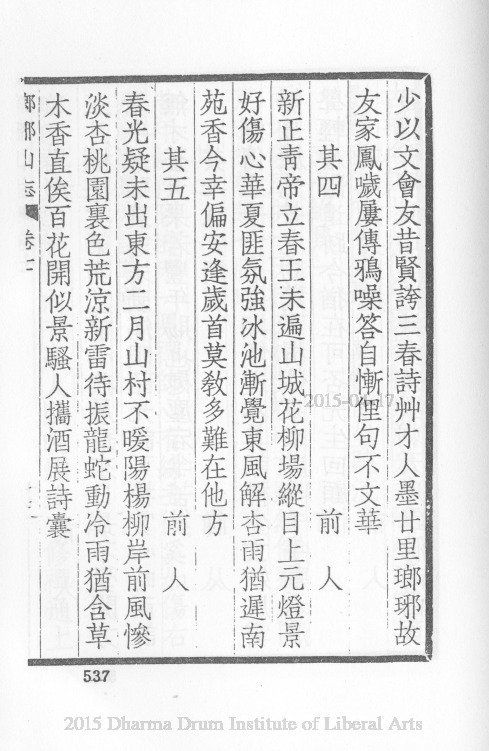 少以文會友昔賢誇三春詩艸才人墨廿里瑯琊故
友家鳳噦屢傳鴉噪答自慚俚句不文華
其四 前人
新正靑帝立春王未遍山城花柳場縱目上元燈景
好傷心華夏匪氛強冰池漸覺東風解杏雨猶遲南
苑香今幸偏安逢歲首莫教多難在他方
其五 前人
春光疑未出東方二月山村不暖陽楊柳岸前風慘
淡杏桃園裏色荒涼新雷待振龍蛇動冷雨猶含草
木香直俟百花開似景騷人攜酒展詩囊
山志 卷十
537
2015-03-17
2015 Dharma Drum Institute of Liberal Arts